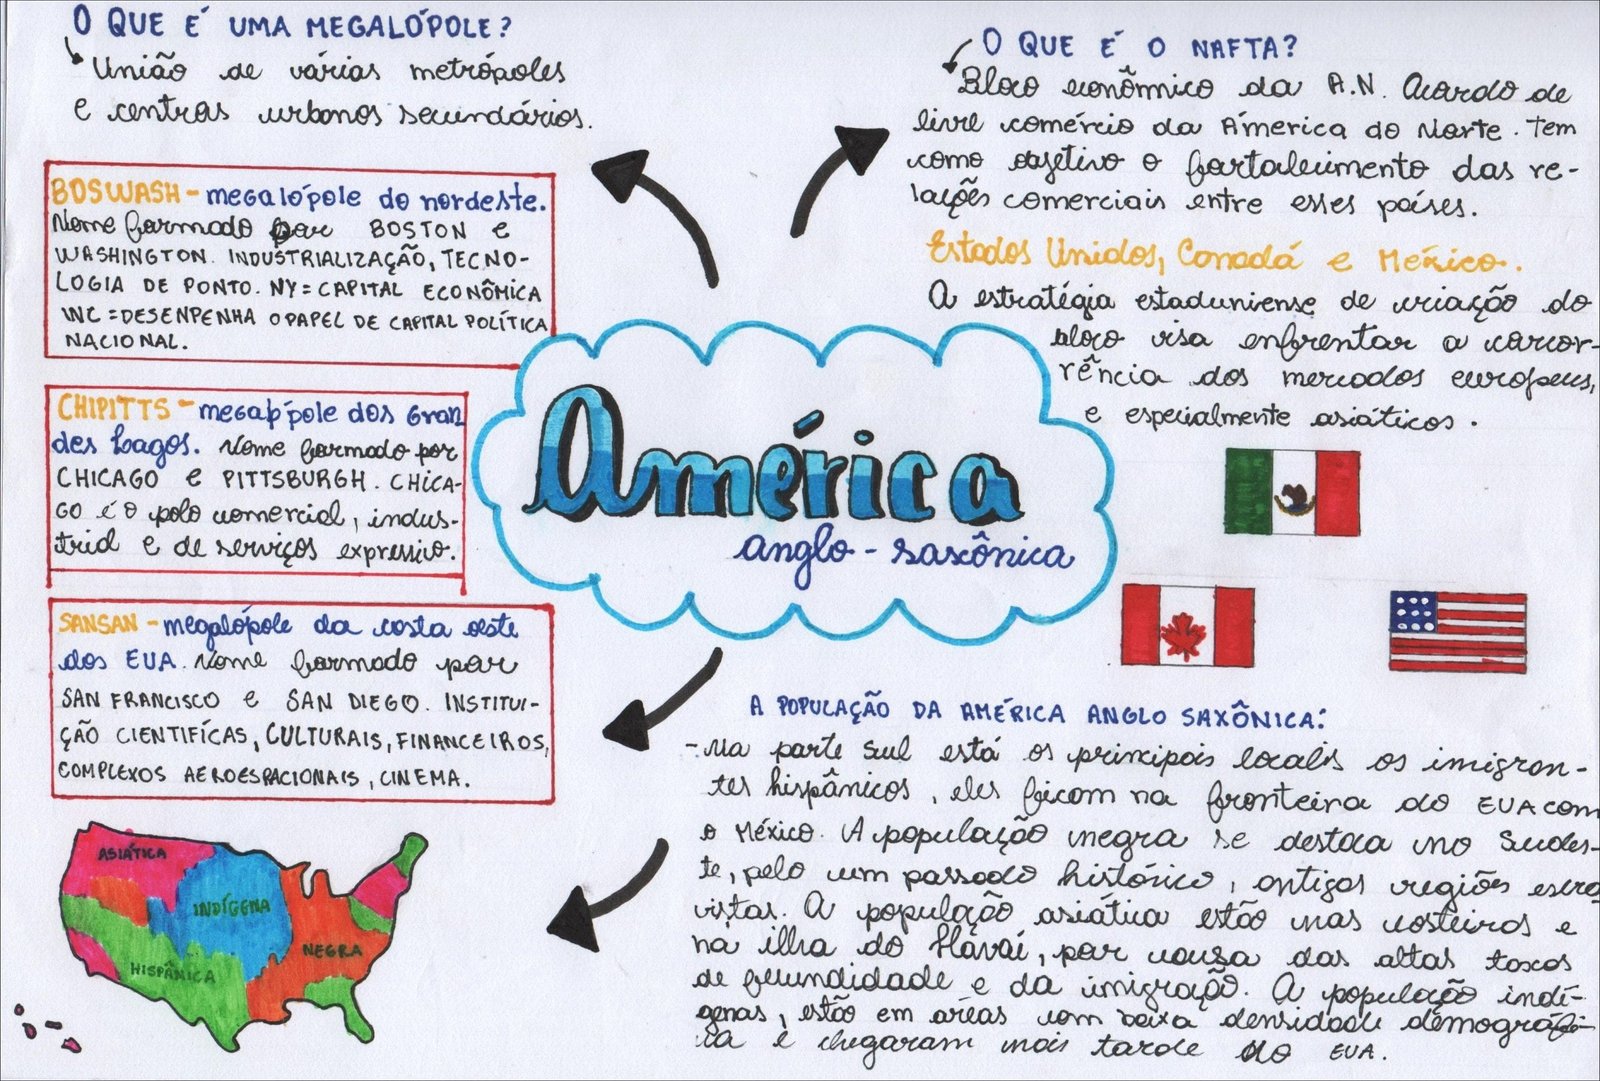 O QUE É UMA MEGALÓPOLE?
União de várias metrópoles
e centros urbanos secundários.
BOSWASH - megalópole do nordeste.
Nome formado por BOSTON e
WASHINGTON. INDUSTRIALIZAÇÃO, TECNO-
LOGIA DE PONTO. NY = CAPITAL ECONÔMICA
WC = DESENPENHA O PAPEL DE CAPITAL POLÍTICA
NACIONAL.
CHIPITTS - megalópole dos Gran
des Lagos. Nome formado por
CHICAGO e PITTSBURGH. CHICA-
GO é o polo comercial, indus-
trial e de serviços expressivo.
SANSAN - megalópole da costa oeste
dos EUA. Nome formado por
SAN FRANCISCO e SAN DIEGO. INSTITUI-
ÇÃO CIENTIFÍCAS, CULTURAIS, FINANCEIROS,
COMPLEXOS AEROESPACIONAIS, CINEMA.
ASIÁTICA
INDÍGENA
NEGRA
HISPÂNICA
América
anglo-saxônica
O QUE É O NAFTA?
Bloco econômico da A.N. Acordo de
livre comércio da Ámerica do Norte. Tem
como objetivo o fortalecimento das re-
lações comerciais entre esses países.
Estados Unidos, Canadá e México.
A estratégia estaduniense de criação do
bloco visa enfrentar a concor-
rência dos mercados europeus,
e especialmente asiáticos.
A POPULAÇÃO DA AMÉRICA ANGLO SAXÔNICA:
- Na parte sul está os principais locais os imigran-
tes hispânicos, eles ficam na fronteira do EUA com
o México. A população negra se destaca no Sudes-
te, pelo um passado histórico, antigas regiões escra
vistas. A população asiática estão nas costeiros e
na ilha do Havaí, por causa das altas taxas
de fecundidade e da imigração. A população indí-
genas, estão em áreas com baixa densidade démográfi-
ca e chegaram mais tarde do EUA.